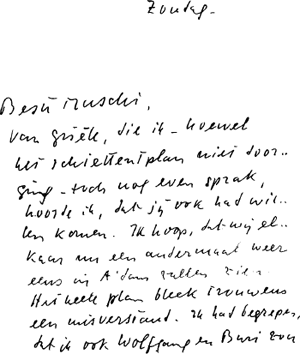 Zondag.
Beste Muschi,
van Griêt, die ik – hoewel
het schiettentplan niet door..
ging – toch nog even sprak,
hoorde ik, dat jij ook had wil..
len komen. Ik hoop, dat wij el..
kaar nu een andermaal weer
eens in A'dam zullen zien.
Het heele plan bleek trouwens
een misverstand. Ik had begrepen,
dat ik ook Wolfgang en Buri zou